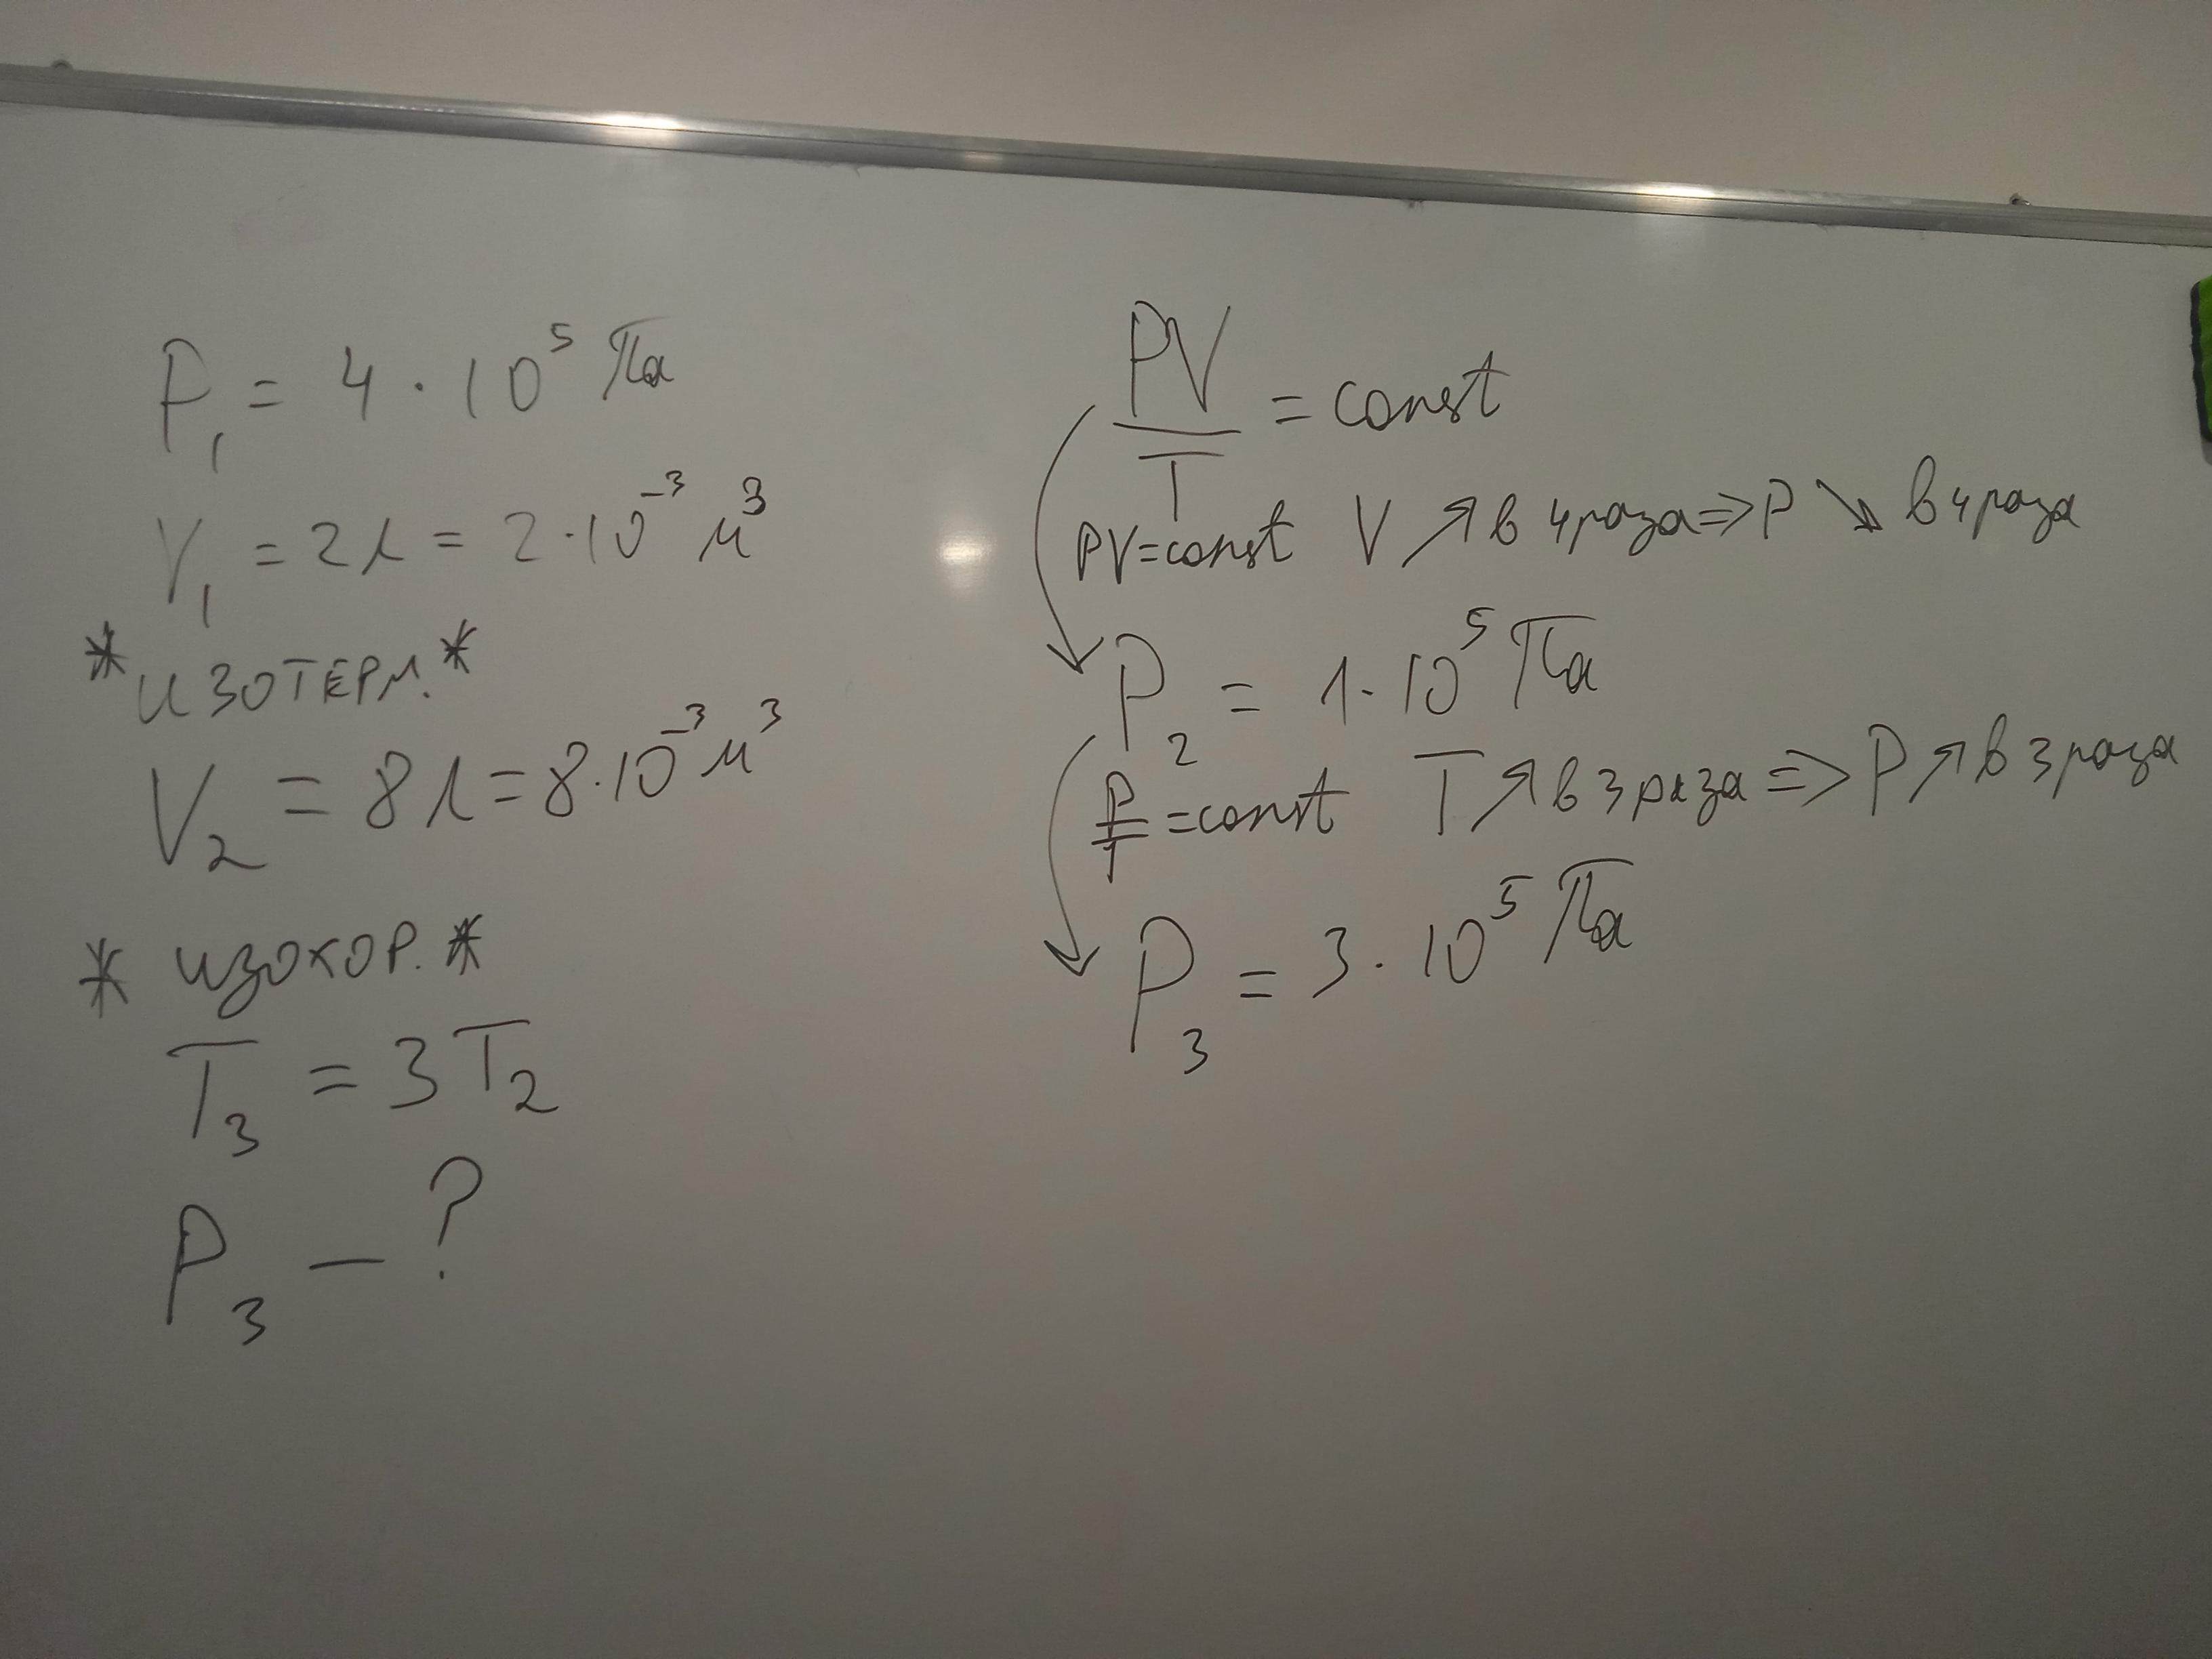 P₁ = 4 · 10⁵ Па
V₁ = 2л = 2·10⁻³ м³
*ИЗОТЕРМ.*
V₂ = 8л = 8·10⁻³ м³
* ИЗОХОР. *
T₃ = 3T₂
P₃ – ?
PV/T = const
PV=const V ↗ в 4 раза => P ↘ в 4 раза
P₂ = 1·10⁵ Па
P/T = const T ↗ в 3 раза => P ↗ в 3 раза
P₃ = 3·10⁵ Па